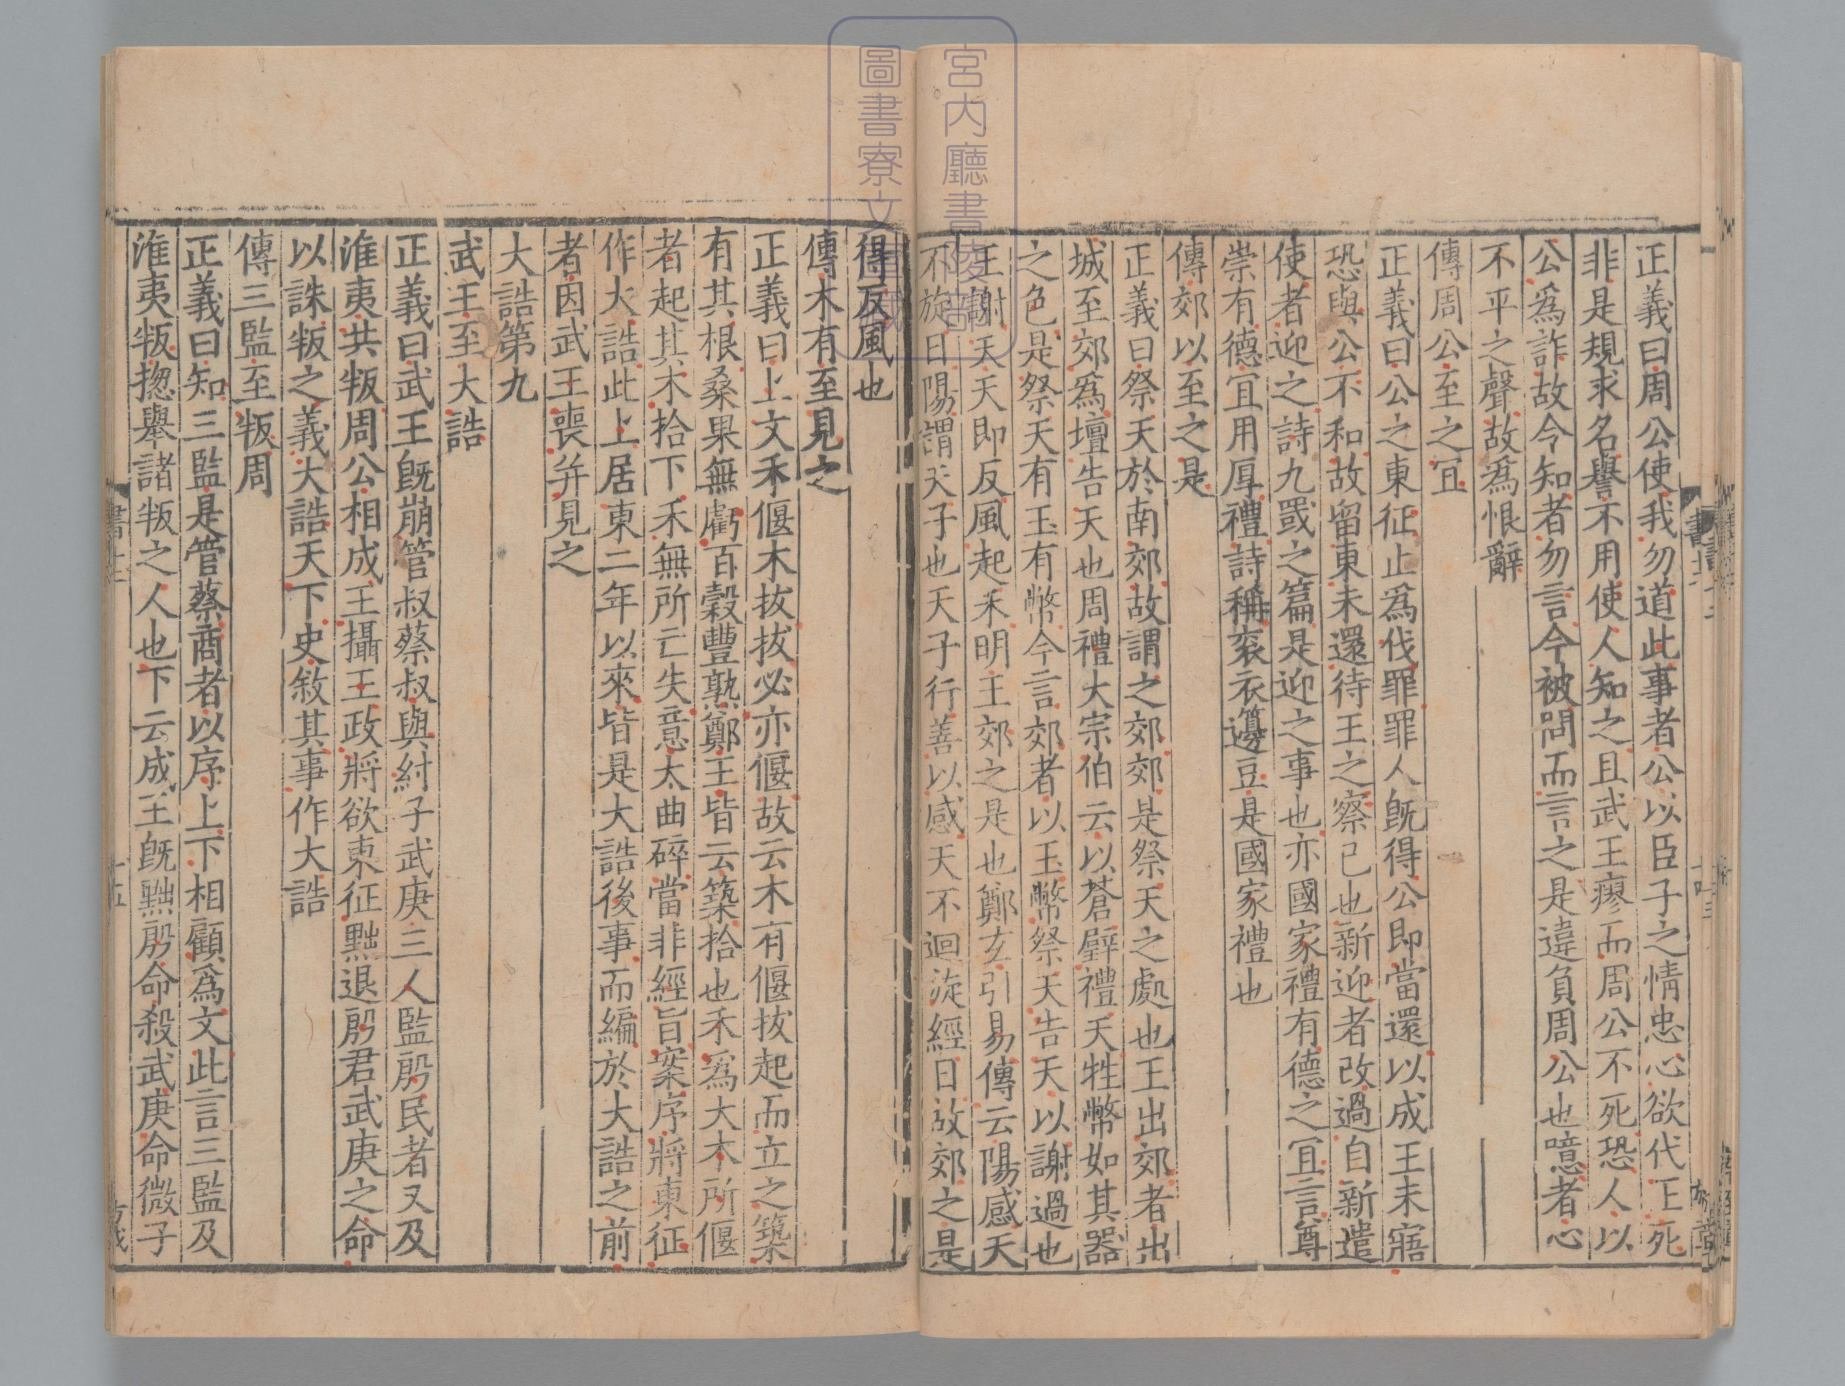 正義曰周公使我勿道此事者公以臣子之情忠心欲代王死
非是規求名譽不用使人知之且武王瘳而周公不死恐人以
公爲詐故令知者勿言今被問而言之是違負周公也噫者心
不平之聲故爲恨辭
傳周公至之冝
正義曰公之東征止爲伐罪罪人旣得公即當還以成王未寤
恐與公不和故留東未還待王之察己也新迎者改過自新遣
使者迎之詩九罭之篇是迎之事也亦國家禮有德之冝言尊
崇有德冝用厚禮詩稱衮衣籩豆是國家禮也
傳郊以至之是
正義曰祭天於南郊故謂之郊郊是祭天之處也王出郊者出
城至郊爲壇告天也周禮大宗伯云以蒼辟禮天牲幣如其器
之色是祭天有玉有幣今言郊者以玉幣祭天告天以謝過也
王謝天天即反風起禾明王郊之是也鄭玄引易傳云陽感天
不旋日陽謂天子也天子行善以感天不迴旋經日故郊之是
得反風也
傳木有至見之
正義曰上文禾偃木拔拔必亦偃故云木有偃拔起而立之築
有其根桑果無虧百穀豐熟鄭王皆云築拾也禾爲大木所偃
者起其木拾下禾無所亡失意太曲碎當非經旨案序將東征
作大誥此上居東二年以來皆是大誥後事而編於大誥之前
者因武王喪并見之
大誥第九
武王至大誥
正義曰武王旣崩管叔蔡叔與紂子武庚三人監殷民者又及
淮夷共叛周公相成王攝王政將欲東征黜退殷君武庚之命
以誅叛之義大誥天下史敘其事作大誥
傳三監至叛周
正義曰知三監是管蔡商者以序上下相顧爲文此言三監及
淮夷叛揔舉諸叛之人也下云成王旣黜殷命殺武庚命微子